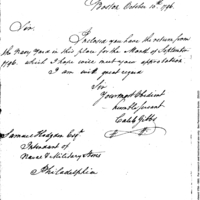 Boston October 10th 1796.
Sir.
Inclosed you have the return from
the Navy Yard in this place for the Month of September
1796. which I hope will meet your approbation
I am with great regard
Sir
Your most Obedient
humble servant
Caleb Gibbs
Samuel Hodgdon Esqr
Intendant of
Naval & Military Stores
Philadelphia